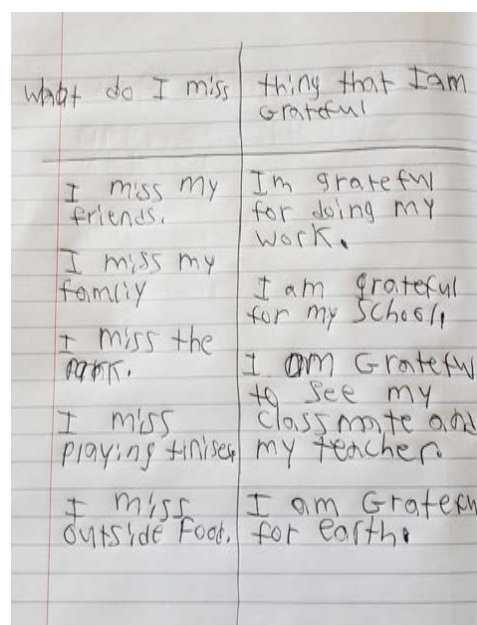 What do I miss
thing that I am
Grateful
I miss my
friends.
I miss my
famliy
I miss the
park.
I miss
playing tinises
I miss
outside Food.
Im grateful
for doing my
work.
I am grateful
for my School,
I am Grateful
to see my
classmate and
my teacher
I am Grateful
for earth.